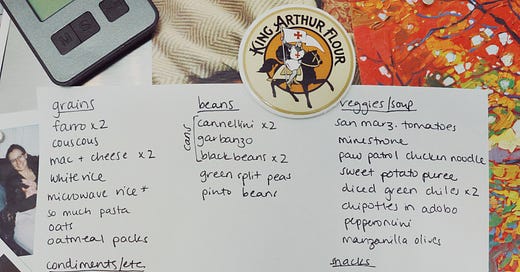 M
S
KING ARTHUR FLOUR
grains
farro x2
couscous
mac + cheese x2
white rice
microwave rice +
so much pasta
oats
oatmeal packs
condiments/etc
beans
cans
cannellini x2
garbanzo
black beans x2
green split peas
pinto beans
veggies/soup
san marz. tomatoes
minestrone
paw patrol chicken noodle
sweet potato puree
diced green chiles x2
chipotles in adobo
pepperoncini
manzanilla olives
snacks